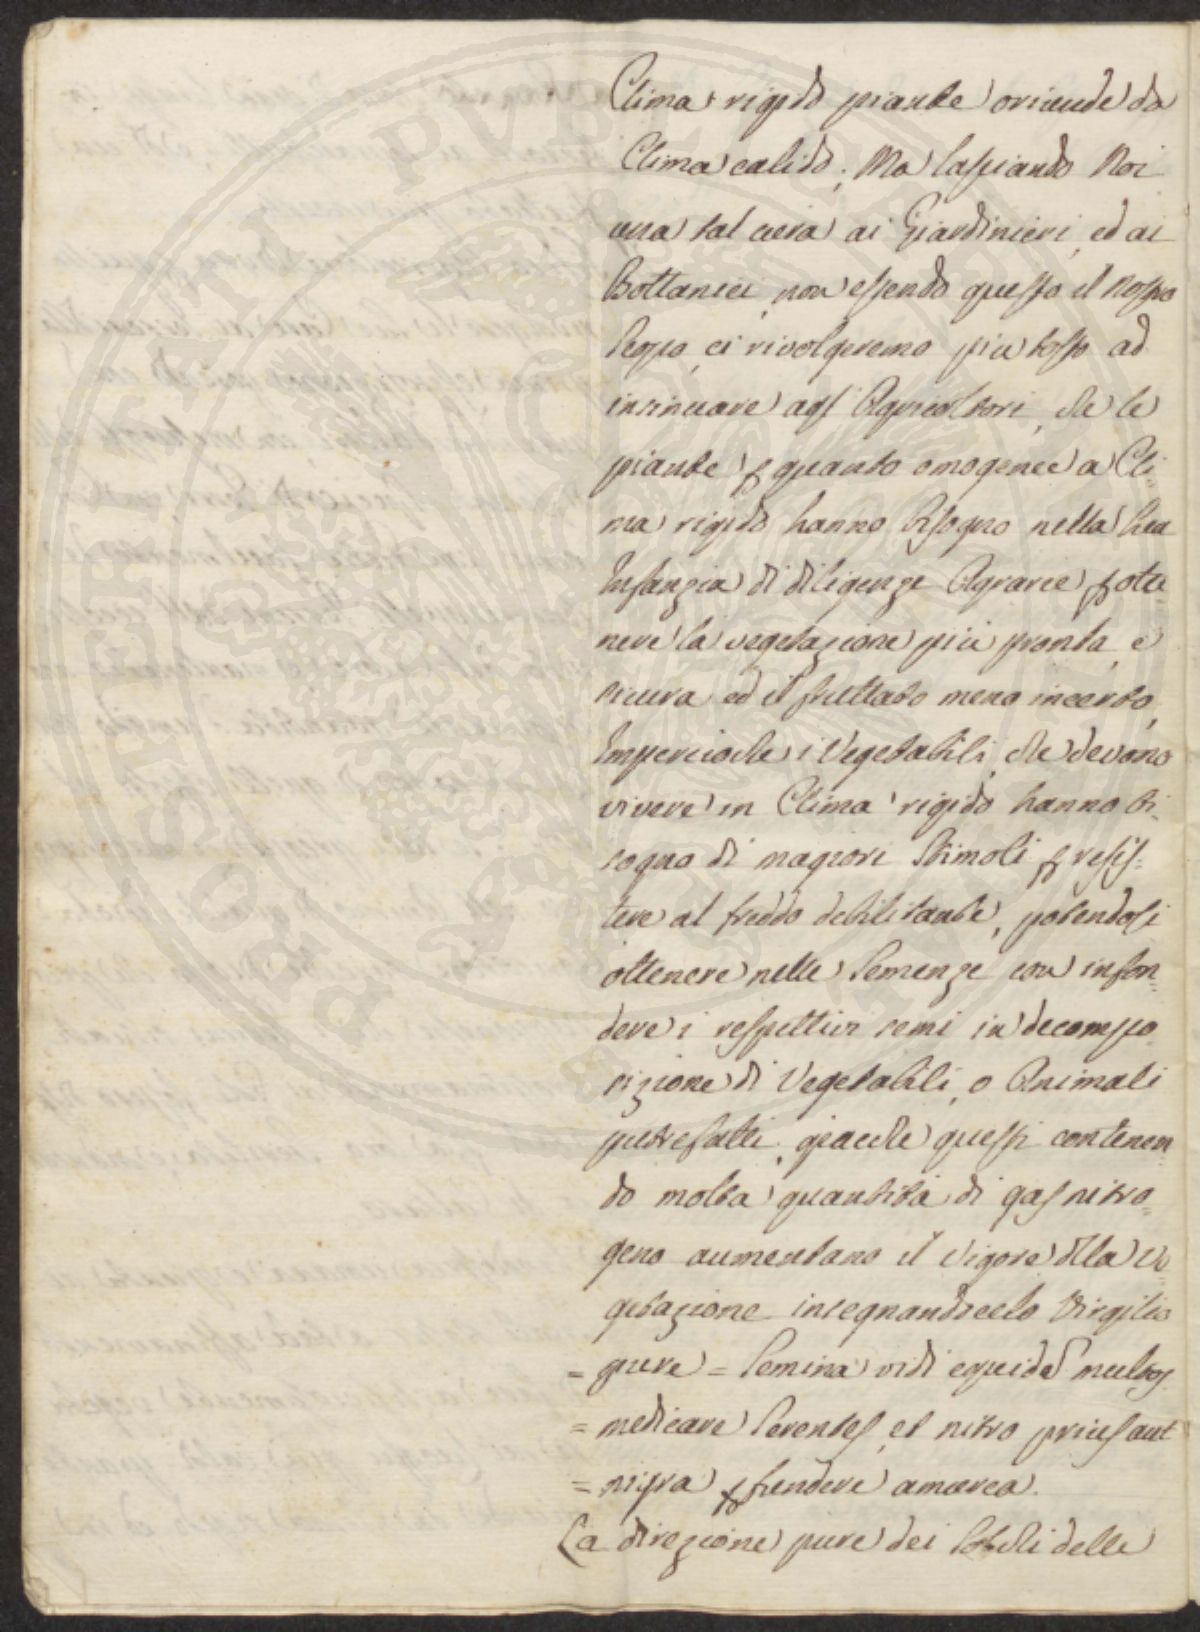 Clima rigido piante oriunde da
Clima calido. Ma lasciando Noi
una tal cura ai Giardinieri, ed ai
Bottanici, non essendo questo il Nostro
Scopo, ci rivolgeremo piutosto ad
insinuare agl' Agricoltori, che le
piante p quanto omogenee a Cli
ma rigido hanno bisogno nella Sua
Infanzia di diligenze Agrarie p otte
nere la vegetazione più pronta, e
sicura ed il fruttato meno incerto,
Impercioche i Vegetabili, che devono
vivere in Clima rigido hanno bi-
sogno di magiori Stimoli p resis-
tere al freddo debilitante, potendosi
ottenere nelle Semenze con infon-
dere i respettivi semi in decompo
sizione di Vegetabili, o Animali
putrefatti, giacche questi contenen
do molta quantità di gas nitro-
geno aumentano il Vigore dlla Ve
getazione insegnandocelo Virgilio
= pure = Semina vidi equidē multos
= medicare Serentes, et nitro prius aut
= nigra pfundere amurca.
La direzione pure dei Solchi delle
PROSPERITATI PVBLICAE